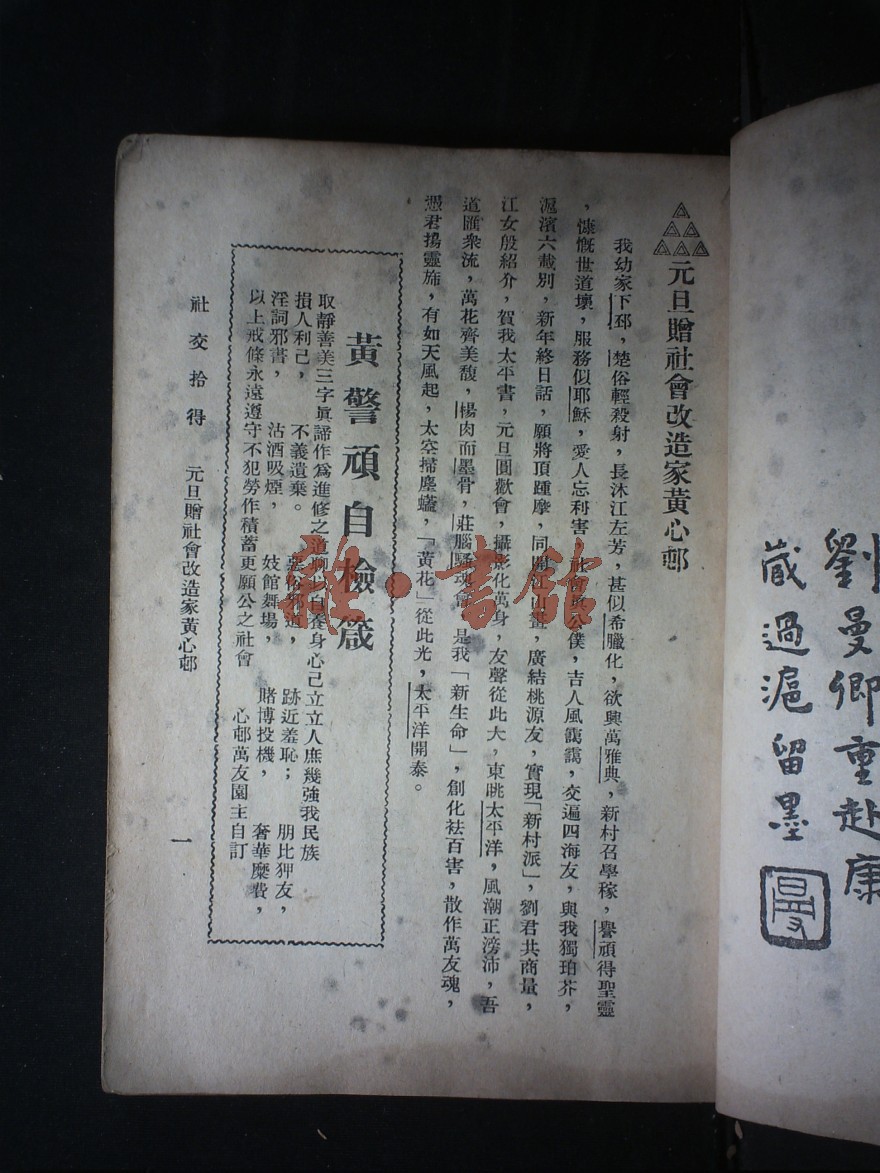 劉曼卿重赴康
藏過滬留墨
曼
元旦贈社會改造家黃心邨
我幼家下邳，楚俗輕殺射，長沐江左芳，甚似希臘化，欲興萬雅典，新村召學稼，譽頑得聖靈
，慷慨世道壞，服務似耶穌，愛人忘利害，社會眞公僕，吉人風靄靄，交遍四海友，與我獨珀芥，
滬濱六載別，新年終日話，願將頂踵摩，同開江山畫，廣結桃源友，實現「新村派」，劉君共商量，
江女殷紹介，賀我太平書，元旦團歡會，攝影化萬身，友聲從此大，東眺太平洋，風潮正滂沛，吾
道匯衆流，萬花齊美馥，楊肉而墨骨，莊腦騷魂會，是我「新生命」，創化祛百害，散作萬友魂，
君揚靈旆，有如天風起，太空掃塵，「黃花」從此光，太平洋開泰。
黃警頑自檢箴
取靜善美三字眞諦作爲進修之道聊以自養身心己立立人庶幾強我民族
損人利己，　不義遺棄。　惡俗邪道，　跡近羞恥；　朋比狎友，
淫詞邪書，　沽酒吸煙，　妓館舞場，　賭博投機，　奢華糜費，
以上戒條永遠遵守不犯勞作積蓄更願公之社會　心邨萬友園主自訂
社交拾得　元旦贈社會改造家黃心邨　一
雜·書館